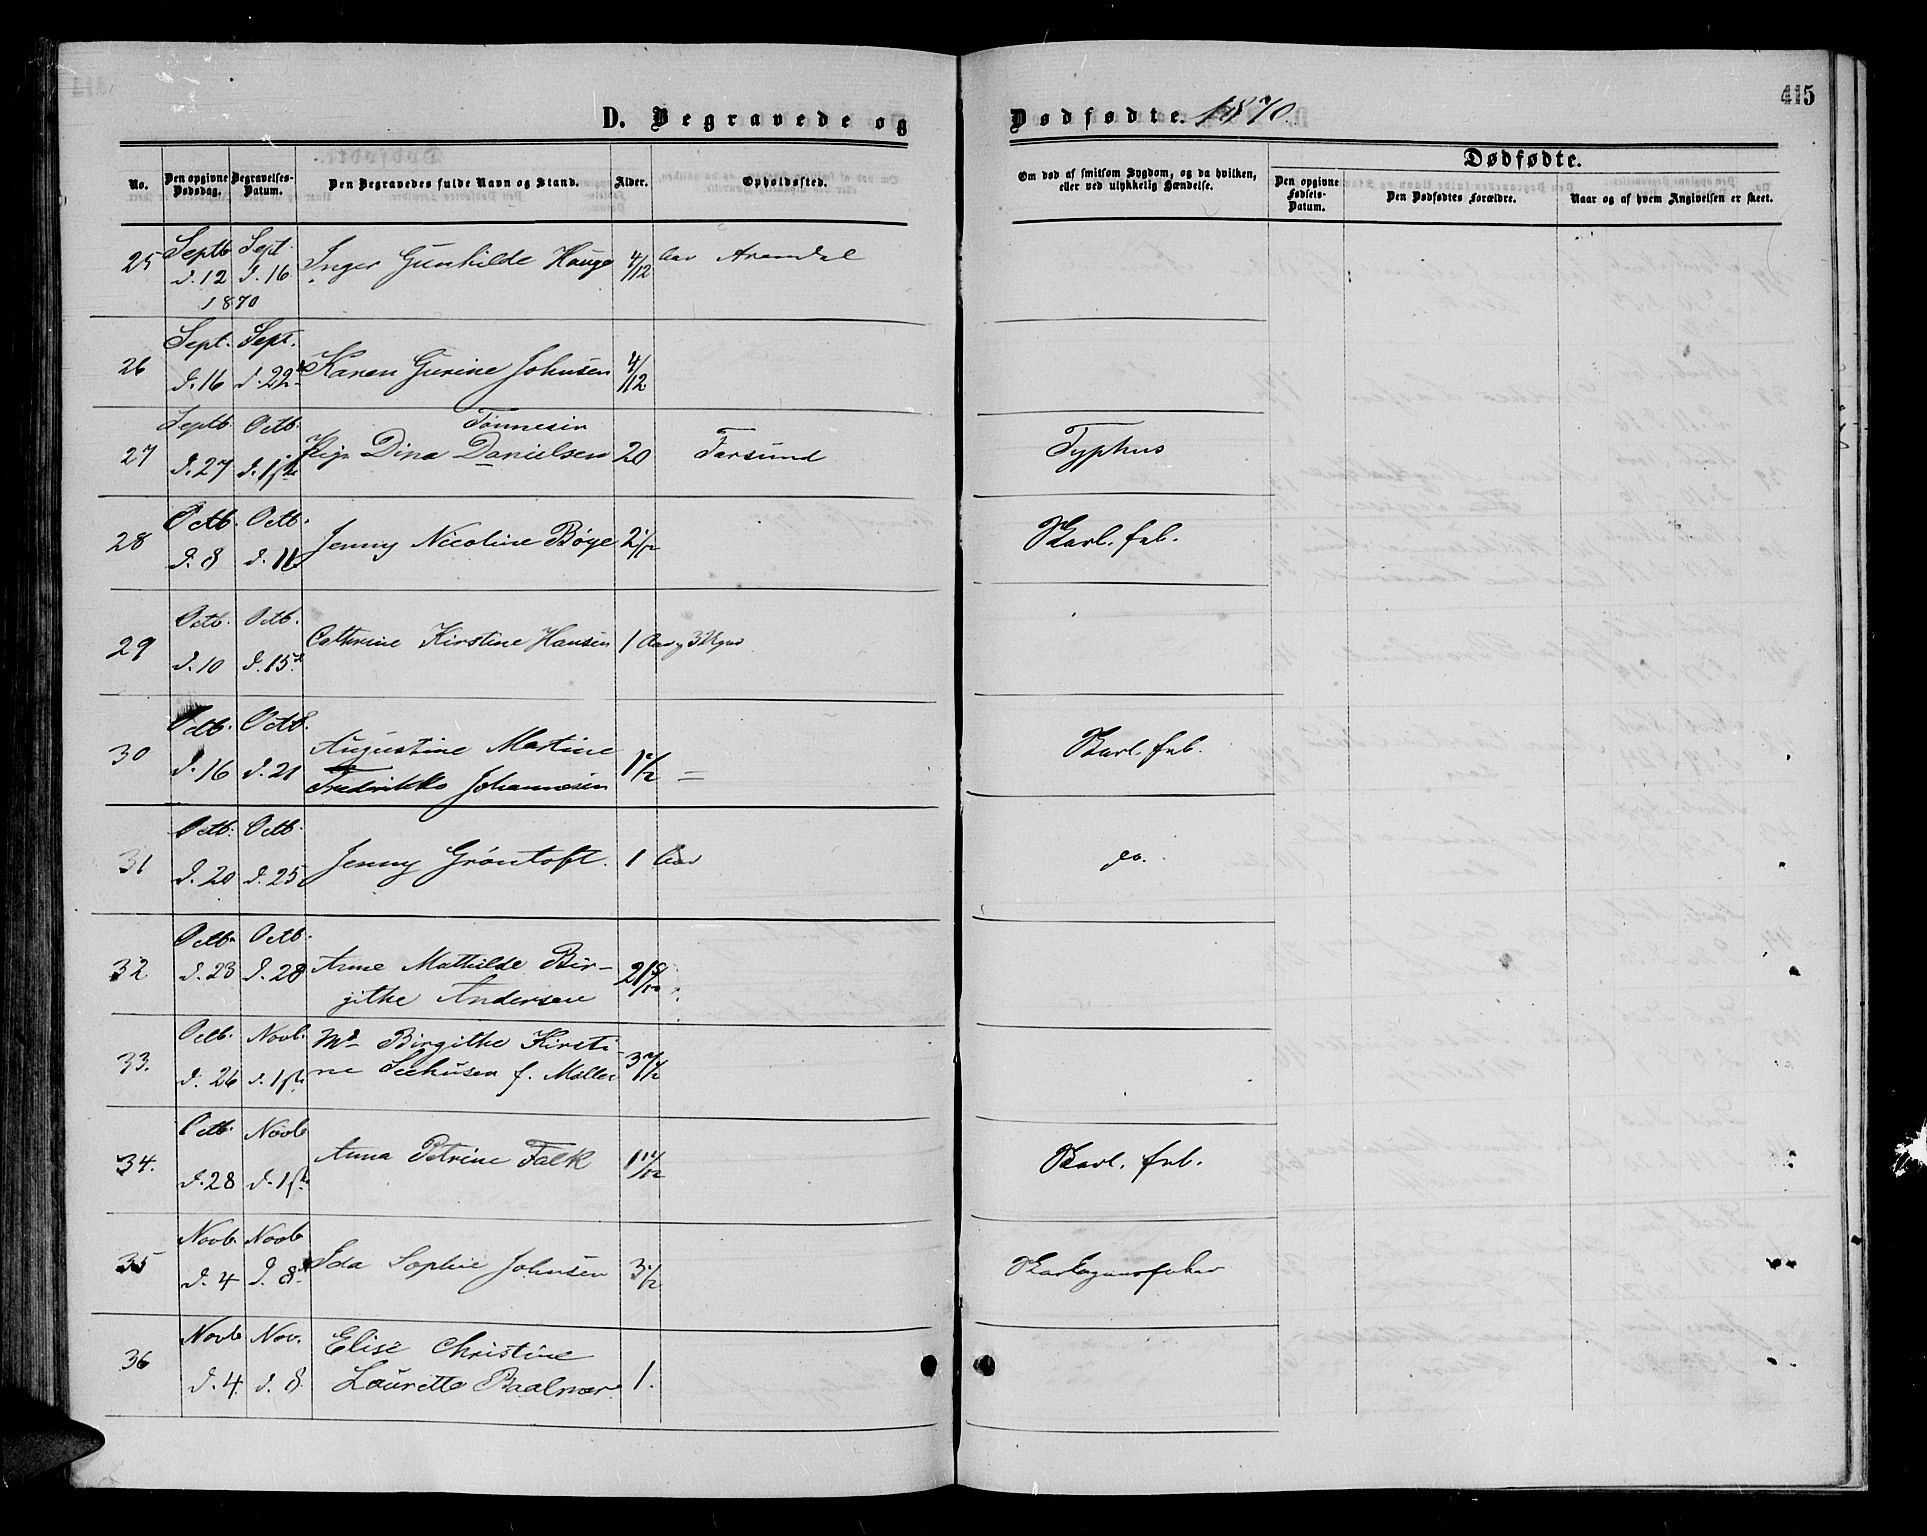 415
D. Begravede og Dødfødte. 1870.
No.
Den opgivne Dødsdag.
Begravelses-Datum.
Den Begravedes fulde Navn og Stand.
Alder.
Opholdssted.
Om død af smitsom Sygdom, og da hvilken, eller ved ulykkelig Hændelse.
Dødfødte.
Den opgivne Fødsels-Datum.
Den Dødfødtes Forældre.
Naar og af hvem Angivelsen er skeet.
25 Septb. d. 12 1870 Sept. d. 16 Inger Gunhilde Hauge 4/12 Aar Arendal
26 Sept. d. 16 Sept. d. 22 Karen Gurine Johnsen 4/12
27 Septb. d. 27 Octb. d. 1ste Pige Dina Danielsen Tønnesen 20 Farsund Typhus
28 Octb. d. 8 Octb. d. 11 Jenny Nicoline Bøye 2 1/2 Skarl. feb.
29 Octb. d. 10 Octb. d. 15 Cathrine Kirstine Hansen 1 Aar 3 Uger
30 Octb. d. 16 Octb. d. 21 Augustine Martine
Fredrikke Johannesen 1 1/2 = Skarl. feb.
31 Octb. d. 20 Octb. d. 25 Jenny Grøntoft. 1 Aar do.
32 Octb. d. 23 Octb. d. 28 Anne Mathilde Bir-
githe Andersen
33. Octb. d. 26 Novb. d. 1ste Md Birgithe Kirsti-
ne Seehusen f. Møller
34. Octb. d. 28 Novb. d. 1ste Anna Petrine Falk Skarl. feb.
35 Novb. d. 4 Novb. d. 8 Ida Sophie Johnsen 3 1/2 Skarlagensfeber
36 Novb. d. 4 Nov. d. 8 Elise Christine
Laurette Baalnær 1.